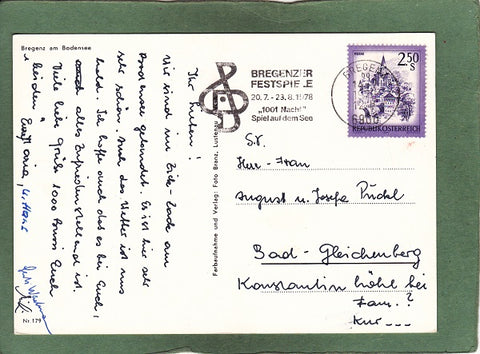 Bregenz am Bodensee
Ihr Lieben!
Wir sind im Zick-Zack am
Bodensee gelandet. Es ist hier alles
sehr schön. Auch das Wetter ist uns
hold. Ich hoffe auch das es bei Euch,
auch alles zufriedenstellend ist.
Viele liebe Grüße 1000 Bussi Euch
beiden
Hans
Nr 179
Farbaufnahme und Verlag: Foto
BREGENZER
FESTSPIELE
20.7. - 23.8.1978
„1001 Nacht"
Spiel auf dem See
BREGENZ
6900
2.50
S
REPUBLIK ÖSTERREICH
Herr - Frau
August u. Josefa Pückl
Bad - Gleichenberg
Konstantin höhl bei
Fam. ?
Kur ---